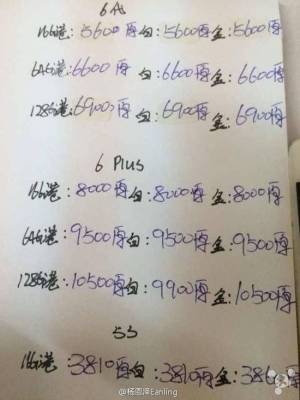 6代
16G港:5600原白:5600原金:5600
64G港:6600原白:6600原金:6600
128G港:6900原白:6900原金:6900
6 Plus
16G港:8000原白:8000原金:8000
64G港:9500原白:9500原金:9500
128G港:10500原白:9900原金:10500
5S
16G港:3810原白:3810原金:38
@杨圆泽Eanling